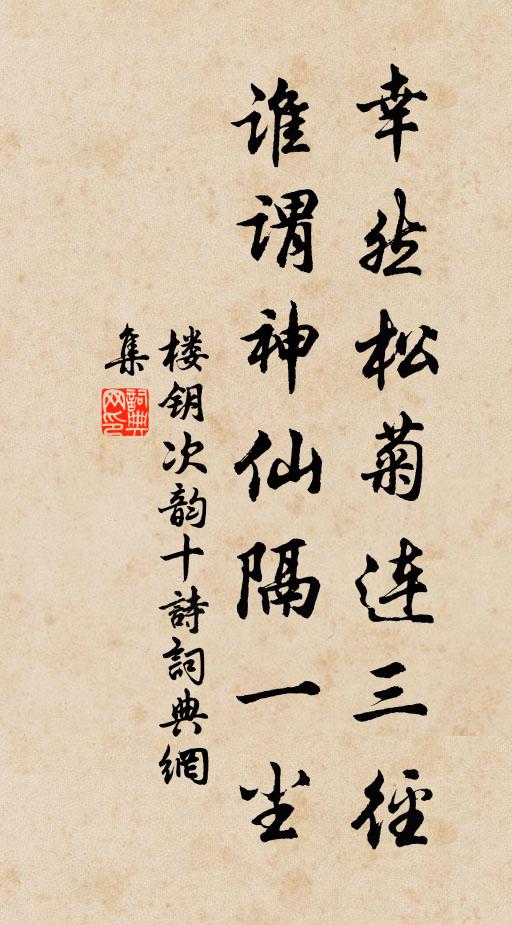 幸然松菊連三徑
誰謂神仙隔一尘
楼钥次韵十詩詞典網
集
詞典
网印